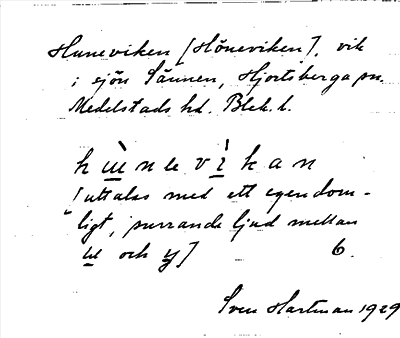 Huneviken [Höneviken], vik
i sjön Sännen, Hjortsberga sn.
Medelstads hd. Blek. l.
h ɯ̀ n l e v ì k a n
[uttalas med ett egendom-
ligt, surrande ljud mellan
ɯ och y] 6.
Sven Hartman 1929